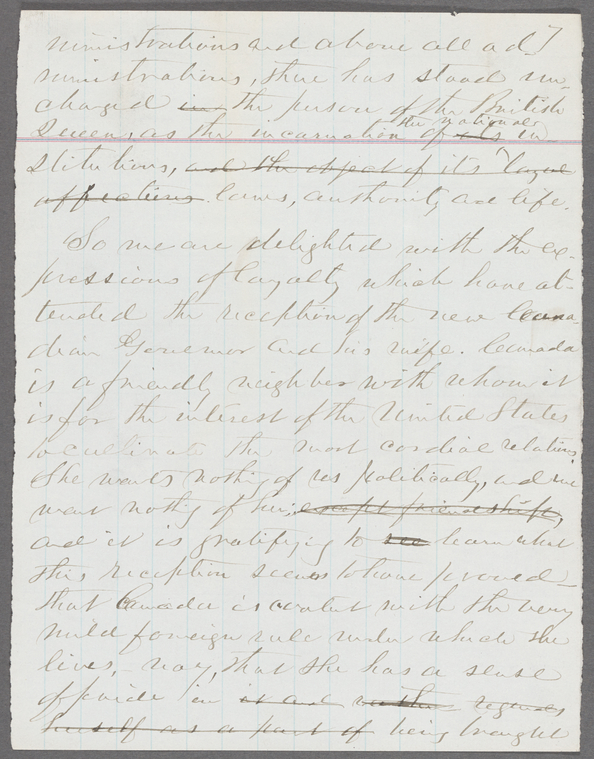 ministrations and above all ad-
ministrations, there has stood un-
changed in the person of the British
the national
Queen, as the incarnation of its in-
stitutions, and the object of its loyal
affections laws, authority and life.
So we are delighted with the ex-
pressions of loyalty which have at-
tended the reception of the new Cana-
dian Governor and his wife. Canada
is a friendly neighbor with whom it
is for the interest of the United States
to cultivate the most cordial relations.
She wants nothing of us politically, and we
want nothing of her; except friendship,
and it is gratifying to see learn what
this reception seems to have proved-
that Canada is content with the very
mild foreign rule under which she
lives, - nay, that she has a sense
of pride in it and rather regards
herself as a part of being brought